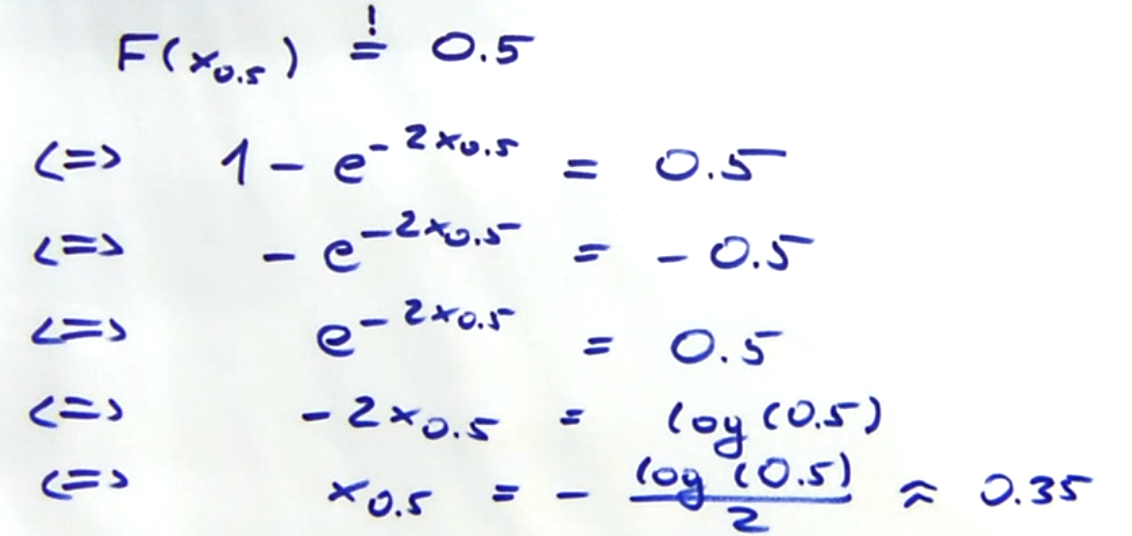 F(x₀.₅) =! 0.5
<=> 1 - e^(-2x₀.₅) = 0.5
<=> - e^(-2x₀.₅) = - 0.5
<=> e^(-2x₀.₅) = 0.5
<=> - 2x₀.₅ = log(0.5)
<=> x₀.₅ = - log(0.5)/2 ≈ 0.35